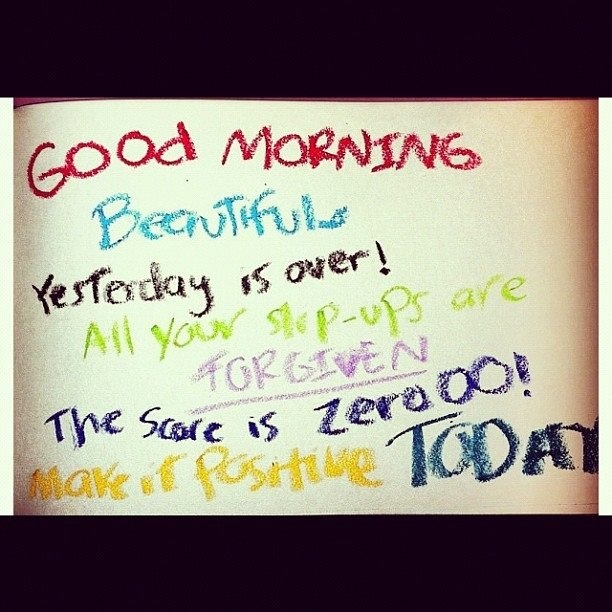 GOOd MORNING
BeauTIFUL
YesTerday is over!
All Your slip-ups are
FORGIVEN
The Score is ZeroOO!
Make iT PosiTive TODAY